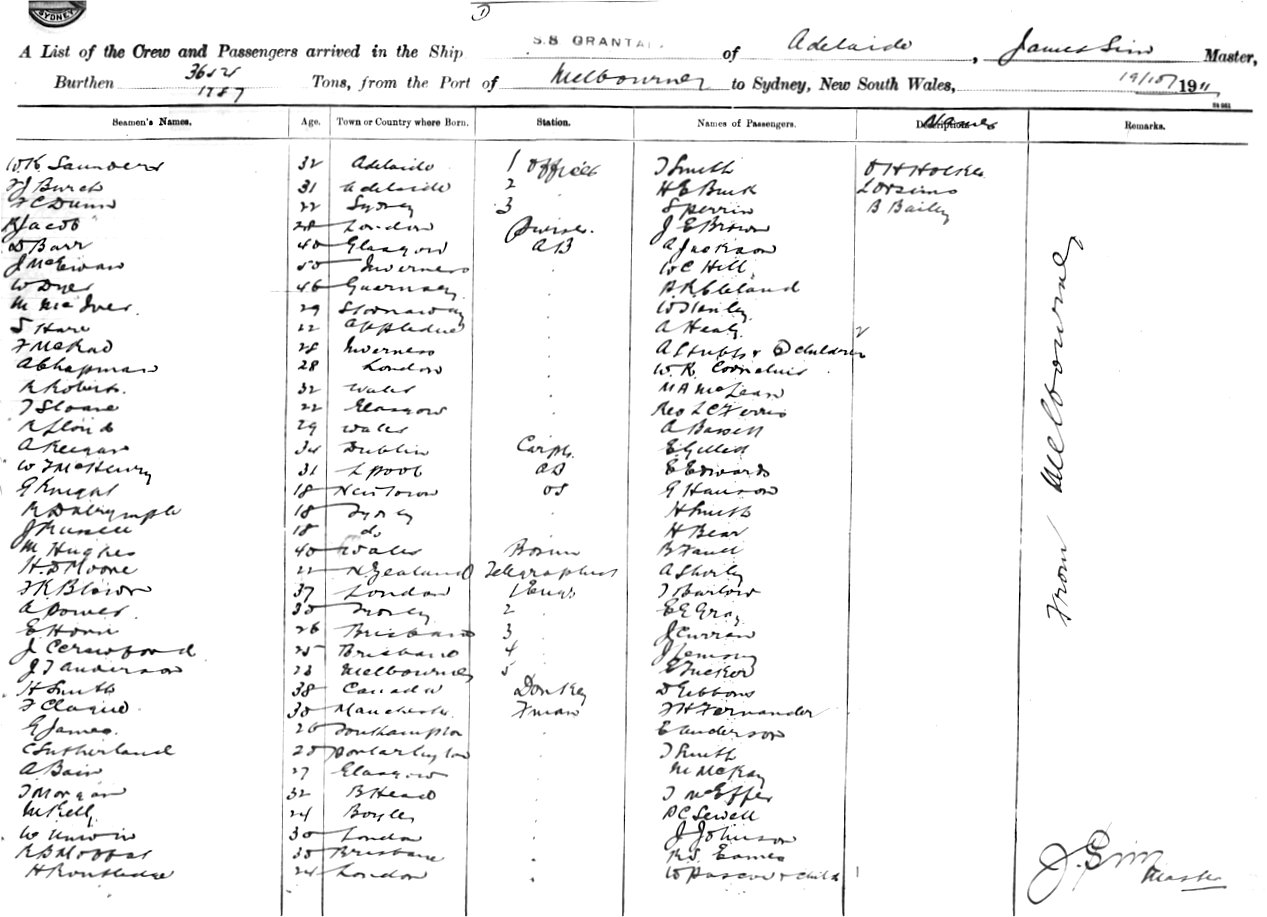 SYDNEY
1
A List of the Crew and Passengers arrived in the Ship S.S GRANTA of Adelaide, James Sim Master,
Burthen 3652 Tons, from the Port of Melbourne to Sydney, New South Wales, 19/10/1911
1787
Seamen's Names. Age. Town or Country where Born. Station. Names of Passengers. Names Remarks.
W K Saunders 32 Adelaide 1 Officer T Smith
F J Burch 31 Adelaide 2 H E Buck
F C Dunn 22 Sydney 3 S Perrin B Bailey
R Jacob 28 London J E Brown
D Barr 40 Glasgow AB A Jackson
J McEwan 50 Inverness W C Hill
W Dyer 46 Guernsey A R Cleland
M McIver 29 Stornaway W Stanley
S Hare 22 Appledore A Healy
F McRad 28 Inverness A Stubbs & 2 children 2
A Chapman 28 London W. R. Cornelius
R Roberts 32 Wales M A McLean
T Sloane 22 Glasgow Rev L C Ferris
R Lloyd 29 Wales A Bassett
A Keegan 34 Dublin Carptr E Gillett
W F McHenry 31 Lpool AB E Edwards
G Knight 18 Newtown OS G Hanson
R Dalrymple 18 Sydney H Smith
J Russell 18 do H Bear
M Hughes 40 Wales Bosun
H D Moore 22 N Zealand Telegraphist A Shirly
F R Blown 37 London 1 Engr T Barlow
A Power 35 Sydney 2 E E Gray
E Horn 26 Brisbane 3 J Curran
J Cerawford 25 Brisbane 4
J F Anderson 23 Melbourne 5 E Tucker
H Smith 38 Canada Donkey D Gibbons
F Clague 30 Manchester Fman F H Fernander
G James 26 Southampton E Anderson
C Sutherland 25 Portarlington T Smith
A Bain 27 Glasgow M McKay
T Morgan 32 B Head
M Kelly 24 Boyle P C Sewell
W Unwin 30 London J Johnson
R B Moffat 35 Brisbane R S Eames
H Routledge 24 London W Pascoe & child 1
From Melbourne
J. Sim
Master